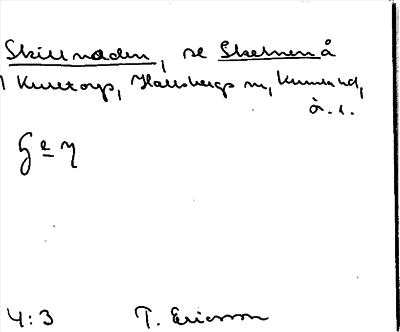 Skillnaden, se Skelnenå
Kuretorp, Hallsbergs sn, Kumla hd,
ä. 1.
4:3 T. Ericsson